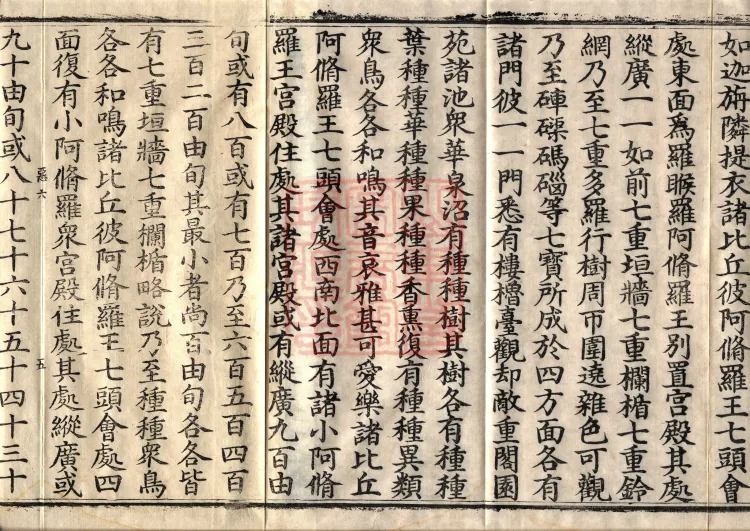 如迦旃隣提衣諸比丘彼阿脩羅王七頭會
處東面爲羅睺羅阿脩羅王別置宮殿其處
縱廣一一如前七重垣牆七重欄楯七重鈴
網乃至七重多羅行樹周帀圍遶雜色可觀
乃至硨磲碼碯等七寶所成於四方面各有
諸門彼一一門悉有樓櫓臺觀却敵重閣園
苑諸池衆華泉沼有種種樹其樹各有種種
葉種種華種種果種種香熏復有種種異類
衆鳥各各和鳴其音哀雅甚可愛樂諸比丘
阿脩羅王七頭會處西南北面有諸小阿脩
羅王宮殿住處其諸宮殿或有縱廣九百由
旬或有八百或有七百乃至六百五百四百
三百二百由旬其最小者尚百由旬各各皆
有七重垣牆七重欄楯略說乃至種種衆鳥
各各和鳴諸比丘彼阿脩羅王七頭會處四
面復有小阿脩羅衆宮殿住處其處縱廣或
六
五
九十由旬或八十七十六十五十四十三十